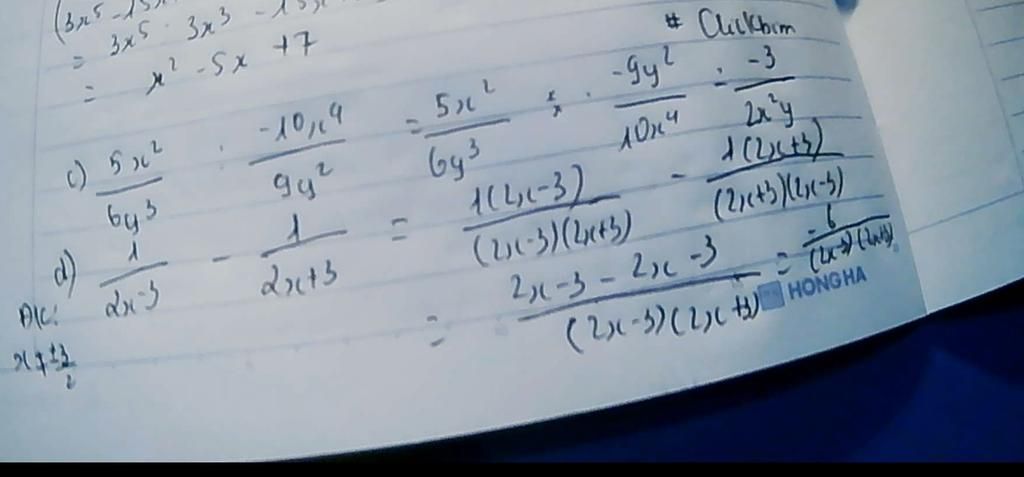 (3x⁵ - 15x
= 3x⁵ : 3x³ - 15x
= x² - 5x + 7
# Clickbim
c) 5x²/6y³ : -10x⁴/9y² = 5x²/6y³ · -9y²/10x⁴ = -3/2x²y
d) 1/2x-3 - 1/2x+3 = 1(2x-3)/(2x-3)(2x+3) - 1(2x+3)/(2x+3)(2x-3)
ĐK: x ≠ ±3/2
= 2x-3-2x-3/(2x-3)(2x+3) = -6/(2x-3)(2x+3)
HONG HA